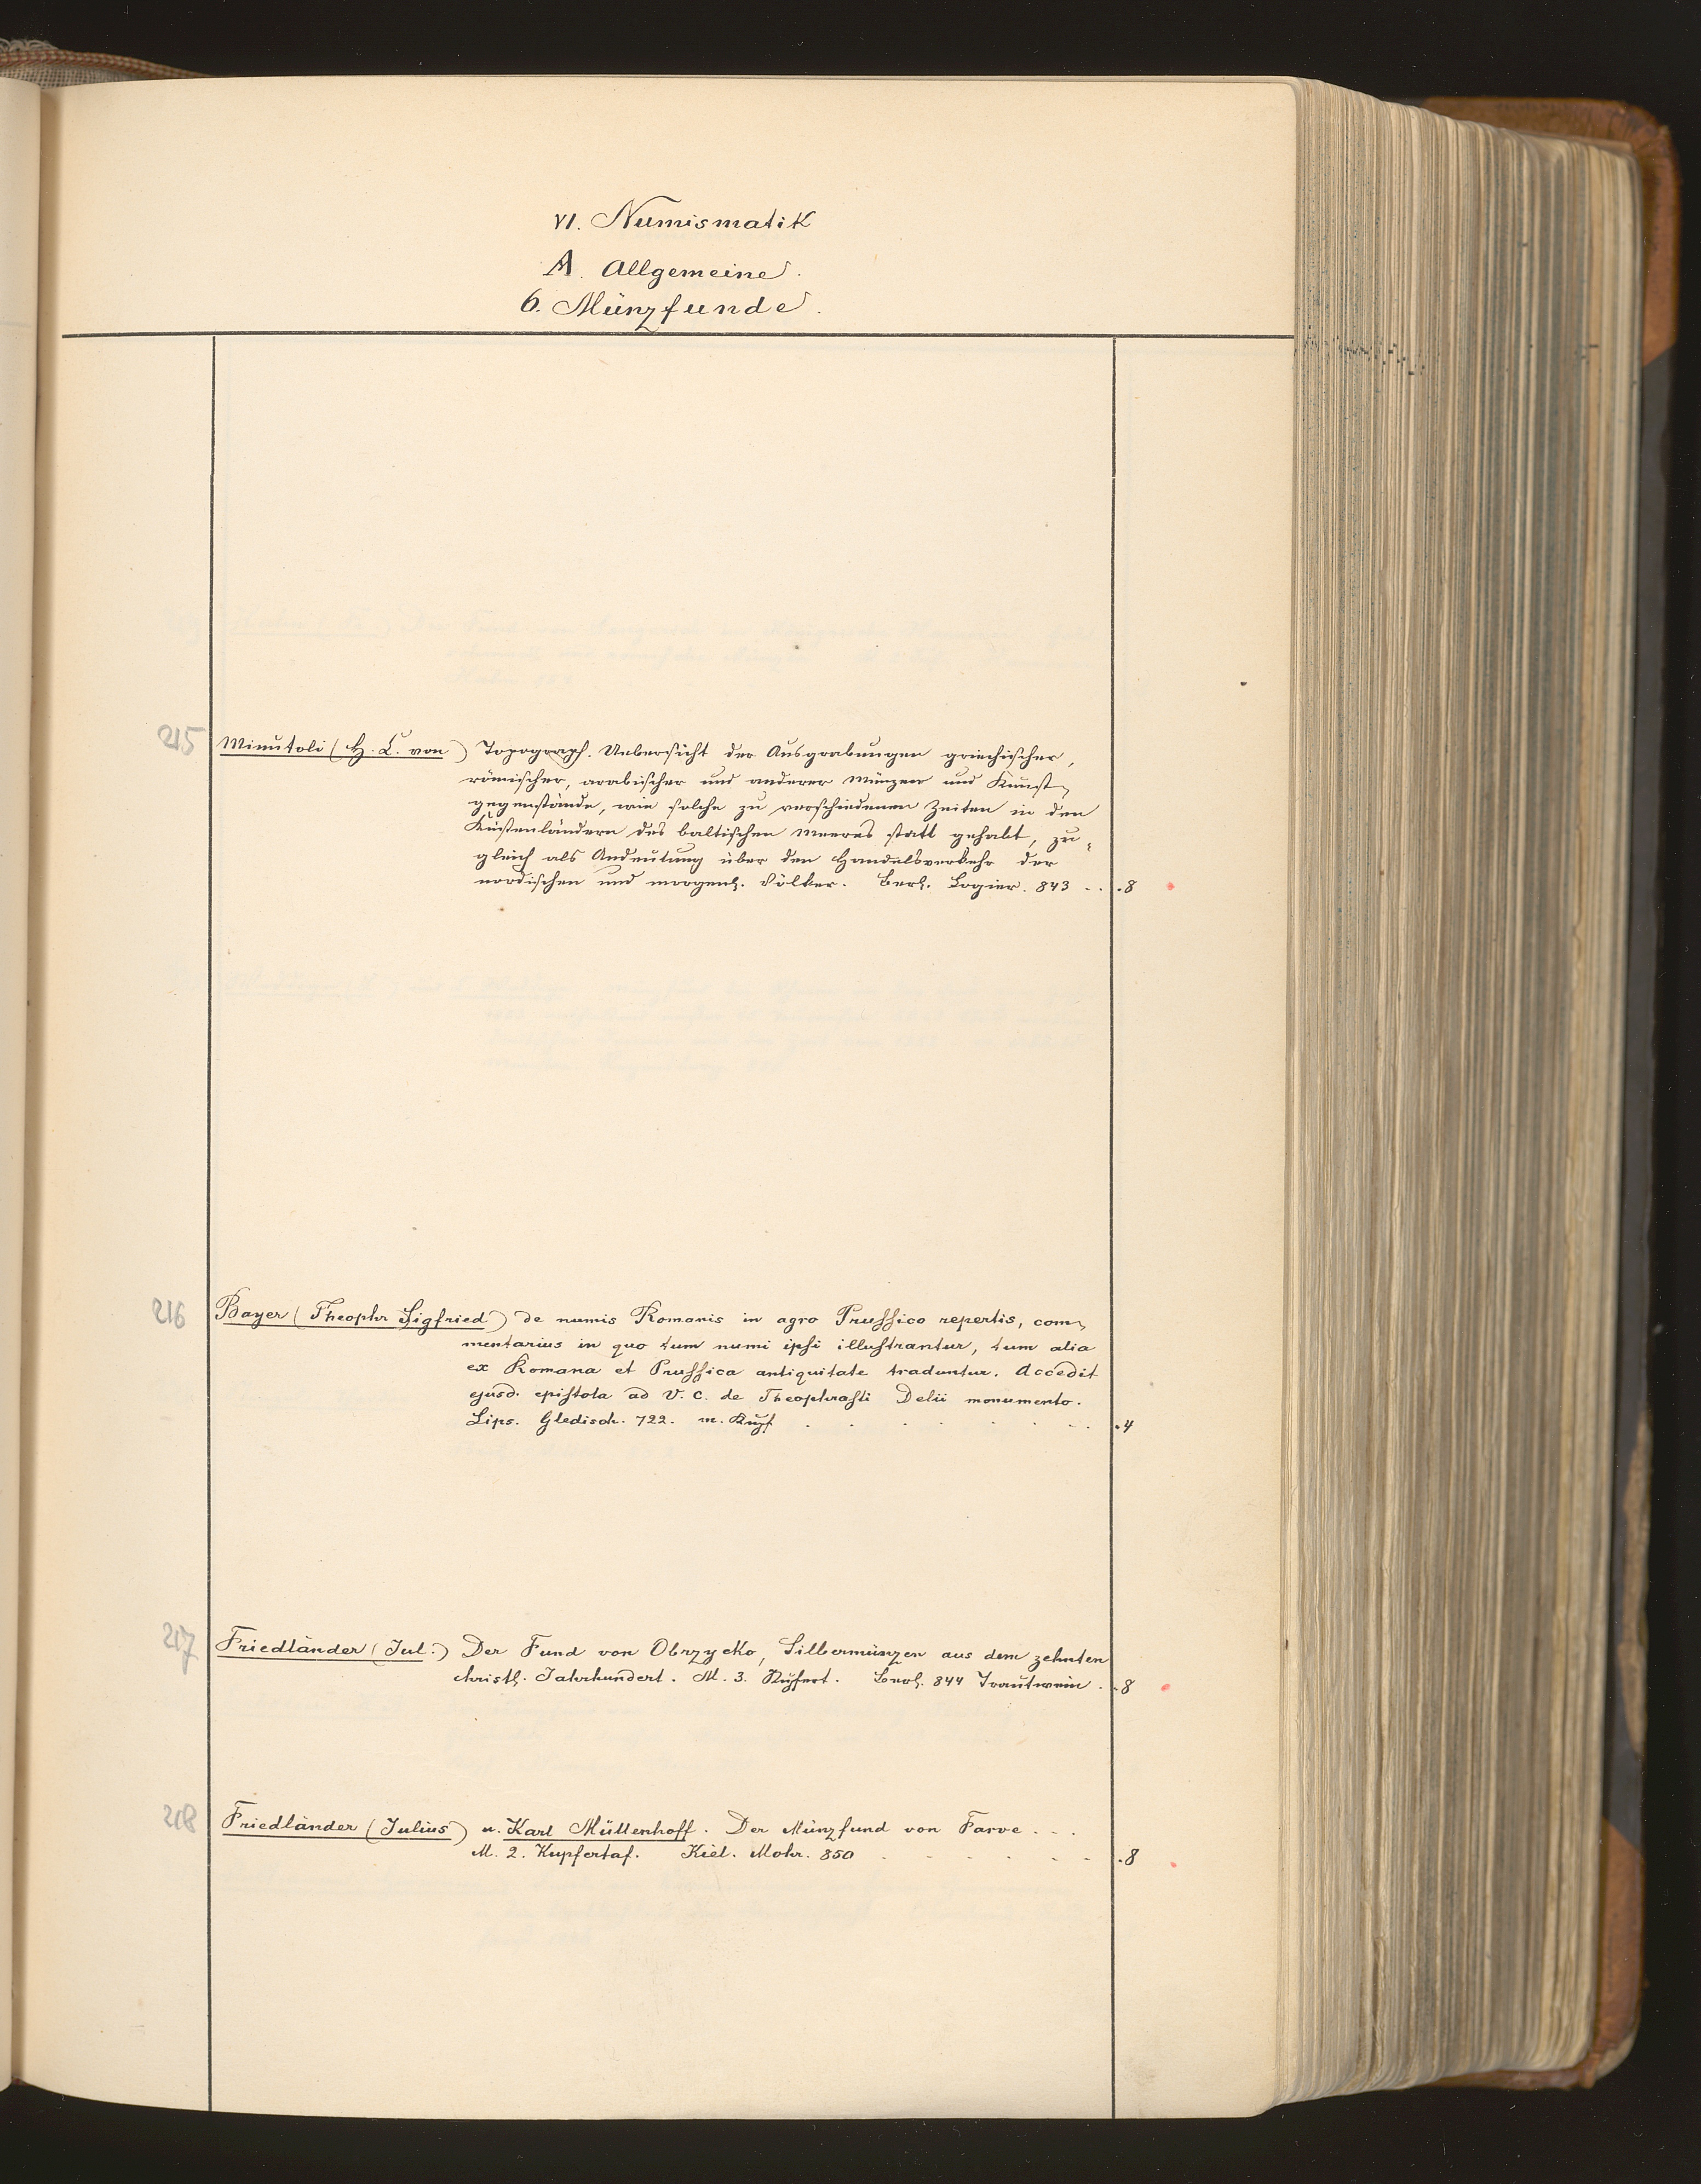 VI. Numismatik
A. Allgemeine.
6. Münzfunde.
215 Minutoli (H. C. von) Topograph. Uebersicht der Ausgrabungen griechischer,
römischer, arabischer und anderer Münzen und Kunst-
gegenstände, wie solche zu verschiedenen Zeiten in den
Küstenländern des baltischen Meeres statt gehabt, zu-
gleich als Andeutung über den Handelsverkehr der
nordischen und morgenl. Völker. Berl. Logier. 843 . . . 8
216 Bayer (Theophr Sigfried) de numis Romanis in agro Prussico repertis, com-
mentarius in quo tum numi ipsi illustrantur, tum alia
ex Romana et Prussica antiquitate traduntur. Accedit
ejusd. epistola ad V. C. de Theophrasti Delii monumento.
Lips. Gledisch. 722. m. Kupf . . . . . . . . 4
217 Friedländer (Jul.) Der Fund von Obrzycko, Silbermünzen aus dem zehnten
christl. Jahrhundert. M. 3. Kupfert. Berl. 844 Trautwein . . 8
218 Friedländer (Julius) u. Karl Müllenhoff. Der Münzfund von Farve . . .
M. 2. Kupfertaf. Kiel. Mohr. 850 . . . . . . . 8